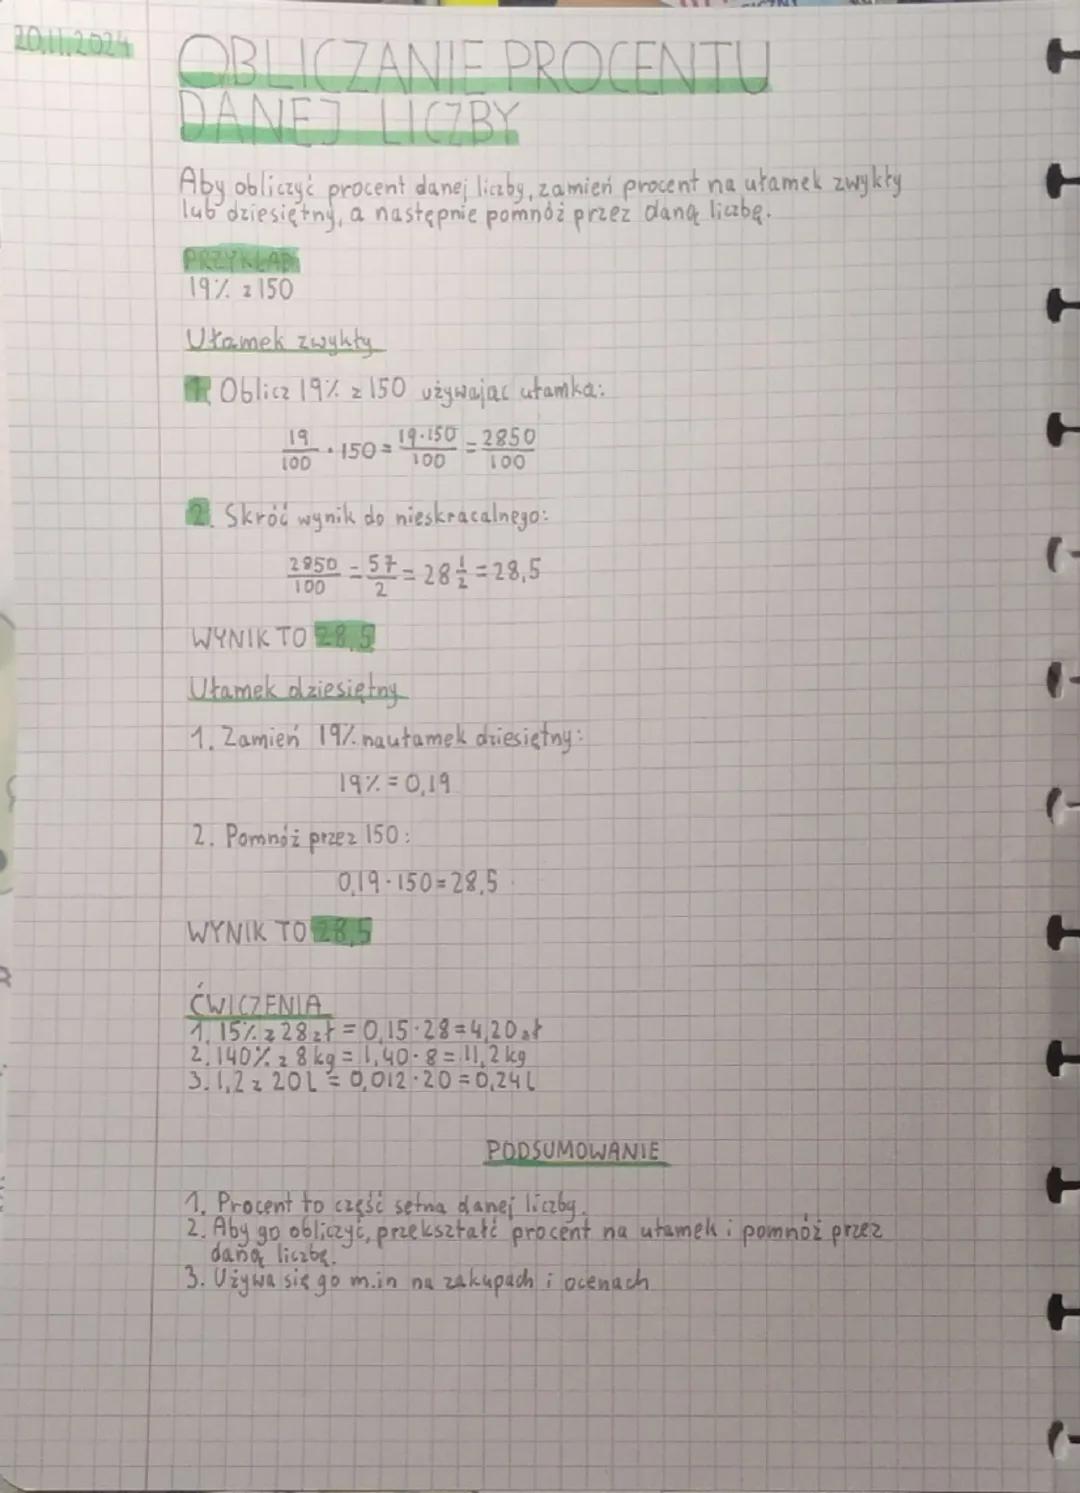 20.11.2024
OBLICZANIE PROCENTU
DANEJ LICZBY
Aby obliczyć procent danej liczby, zamień procent na ułamek zwykły
lub dziesiętny, a następnie pomnóż przez daną liczbę.
PRZYKŁAD
19% z 150
Ułamek zwykły
1. Oblicz 19% z 150 używając ułamka:
19/100 · 150 = 19·150/100 = 2850/100
2. Skróć wynik do nieskracalnego:
2850/100 = 57/2 = 28 1/2 = 28,5
WYNIK TO 28,5
Ułamek dziesiętny
1. Zamień 19% na ułamek dziesiętny:
19% = 0,19
2. Pomnóż przez 150:
0,19 · 150 = 28,5
WYNIK TO 28,5
ĆWICZENIA
1. 15% z 28 zł = 0,15 · 28 = 4,20 zł
2. 140% z 8 kg = 1,40 · 8 = 11,2 kg
3. 1,2 z 20 L = 0,012 · 20 = 0,24 L
PODSUMOWANIE
1. Procent to część setna danej liczby.
2. Aby go obliczyć, przekształć procent na ułamek i pomnóż przez
daną liczbę.
3. Używa się go m.in na zakupach i ocenach